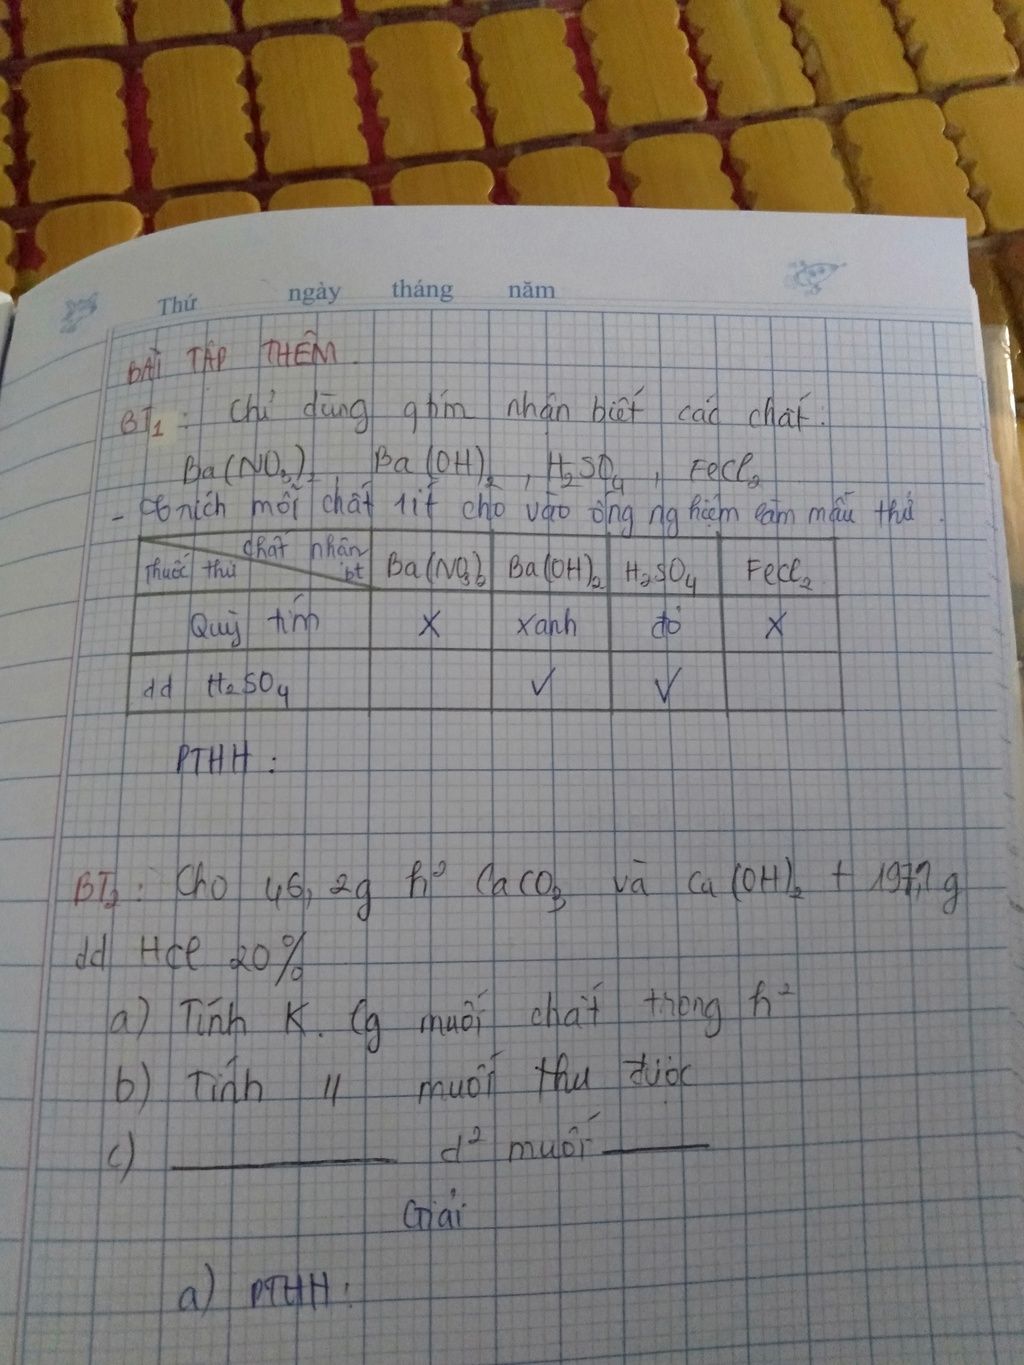 Thứ ngày tháng năm
BÀI TẬP THÊM
BT1: Chỉ dùng qtím nhận biết các chất:
Ba(NO3)2, Ba(OH)2, H2SO4, FeCl2
- trích mỗi chất 1 ít cho vào ống nghiệm làm mẫu thử.
chất nhận bt
Thuốc thử Ba(NO3)2 Ba(OH)2 H2SO4 FeCl2
Quỳ tím X xanh đỏ X
dd H2SO4 ✓ ✓
PTHH:
BT2: Cho 46,2g h² CaCO3 và Ca(OH)2 + 197,1g
dd HCl 20%
a) Tính K. lg muối chất trong h²
b) Tính 11 muối thu được
c) d² muối
Giải
a) PTHH: